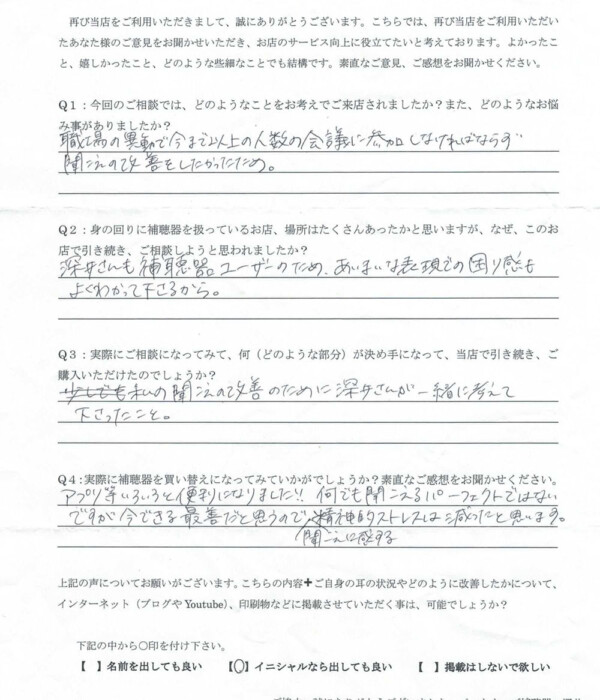 再び当店をご利用いただきまして、誠にありがとうございます。こちらでは、再び当店をご利用いただい
たあなた様のご意見をお聞かせいただき、お店のサービス向上に役立てたいと考えております。よかったこ
と、嬉しかったこと、どのような些細なことでも結構です。素直なご意見、ご感想をお聞かせください。
Q1：今回のご相談では、どのようなことをお考えでご来店されましたか？また、どのようなお悩
み事がありましたか？
職場の異動で今まで以上の人数の会議に参加しなければならず
聞こえの改善をしたかったため。
Q2：身の回りに補聴器を扱っているお店、場所はたくさんあったかと思いますが、なぜ、このお
店で引き続き、ご相談しようと思われましたか？
深井さんも補聴器ユーザーのため、あいまいな表現での困り感も
よくわかって下さるから。
Q3：実際にご相談になってみて、何（どのような部分）が決め手になって、当店で引き続き、ご
購入いただけたのでしょうか？
少しでも私の聞こえの改善のために深井さんが一緒に考えて
下さったこと。
Q4：実際に補聴器を買い替えになってみていかがでしょうか？素直なご感想をお聞かせください。
アプリ等いろいろと便利になりました!! 何でも聞こえるパーフェクトではない
ですが今できる最善だと思うので、精神的ストレスは減ったと思います。
聞こえに感する
上記の声についてお願いがございます。こちらの内容＋ご自身の耳の状況やどのように改善したかについて、
インターネット（ブログや Youtube）、印刷物などに掲載させていただく事は、可能でしょうか？
下記の中から〇印を付け下さい。
【　】名前を出しても良い　【〇】イニシャルなら出しても良い　【　】掲載はしないで欲しい